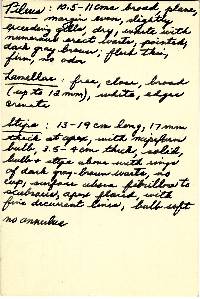 Pileus: 10.5-11cm broad, plane,
margin even, slightly
exceeding gills, dry, white with
numerous erect warts, pointed,
dark gray brown; flesh thin,
firm, no odor
Lamellae: free, close, broad
(up to 12 mm), white, edges
crenate
Stipe: 13-19 cm long, 17mm
thick at apex, with napiform
bulb, 3.5-4cm thick, solid,
bulb & stipe above with rings
of dark gray-brown warts, no
cup, surface above fibrillose to
scabrous, apex flared, with
fine decurrent lines, bulb soft
no annulus